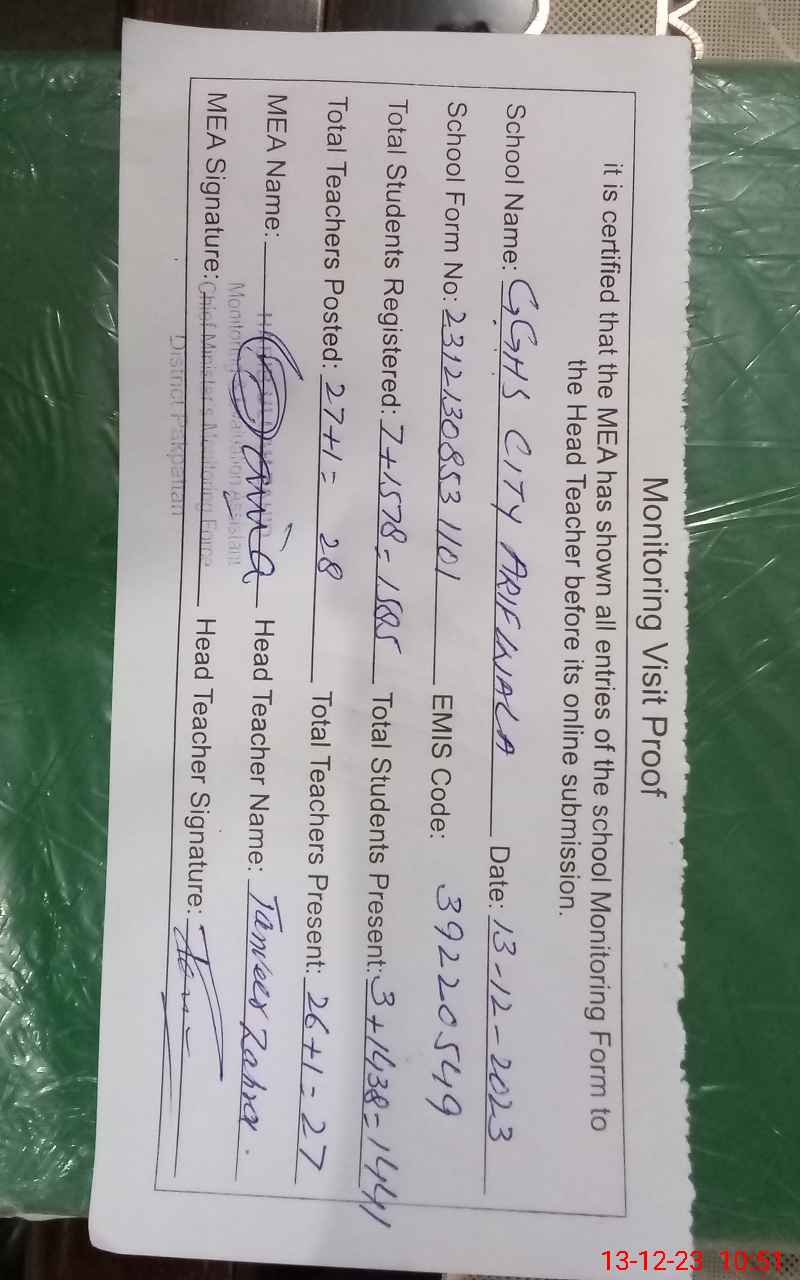 Monitoring Visit Proof
it is certified that the MEA has shown all entries of the school Monitoring Form to
the Head Teacher before its online submission.
School Name: GGHS CITY ARIFWALA Date: 13-12-2023
School Form No: 2312130853 1101 EMIS Code: 39220549
Total Students Registered: 7+1578=1585 Total Students Present: 3+1438=1441
Total Teachers Posted: 27+1= 28 Total Teachers Present: 26+1=27
MEA Name: Head Teacher Name: Tanveer Zahra.
Monitoring Assistant
MEA Signature: Chief Minister's Monitoring Force Head Teacher Signature:
District Pakpattan
13-12-23 10:51